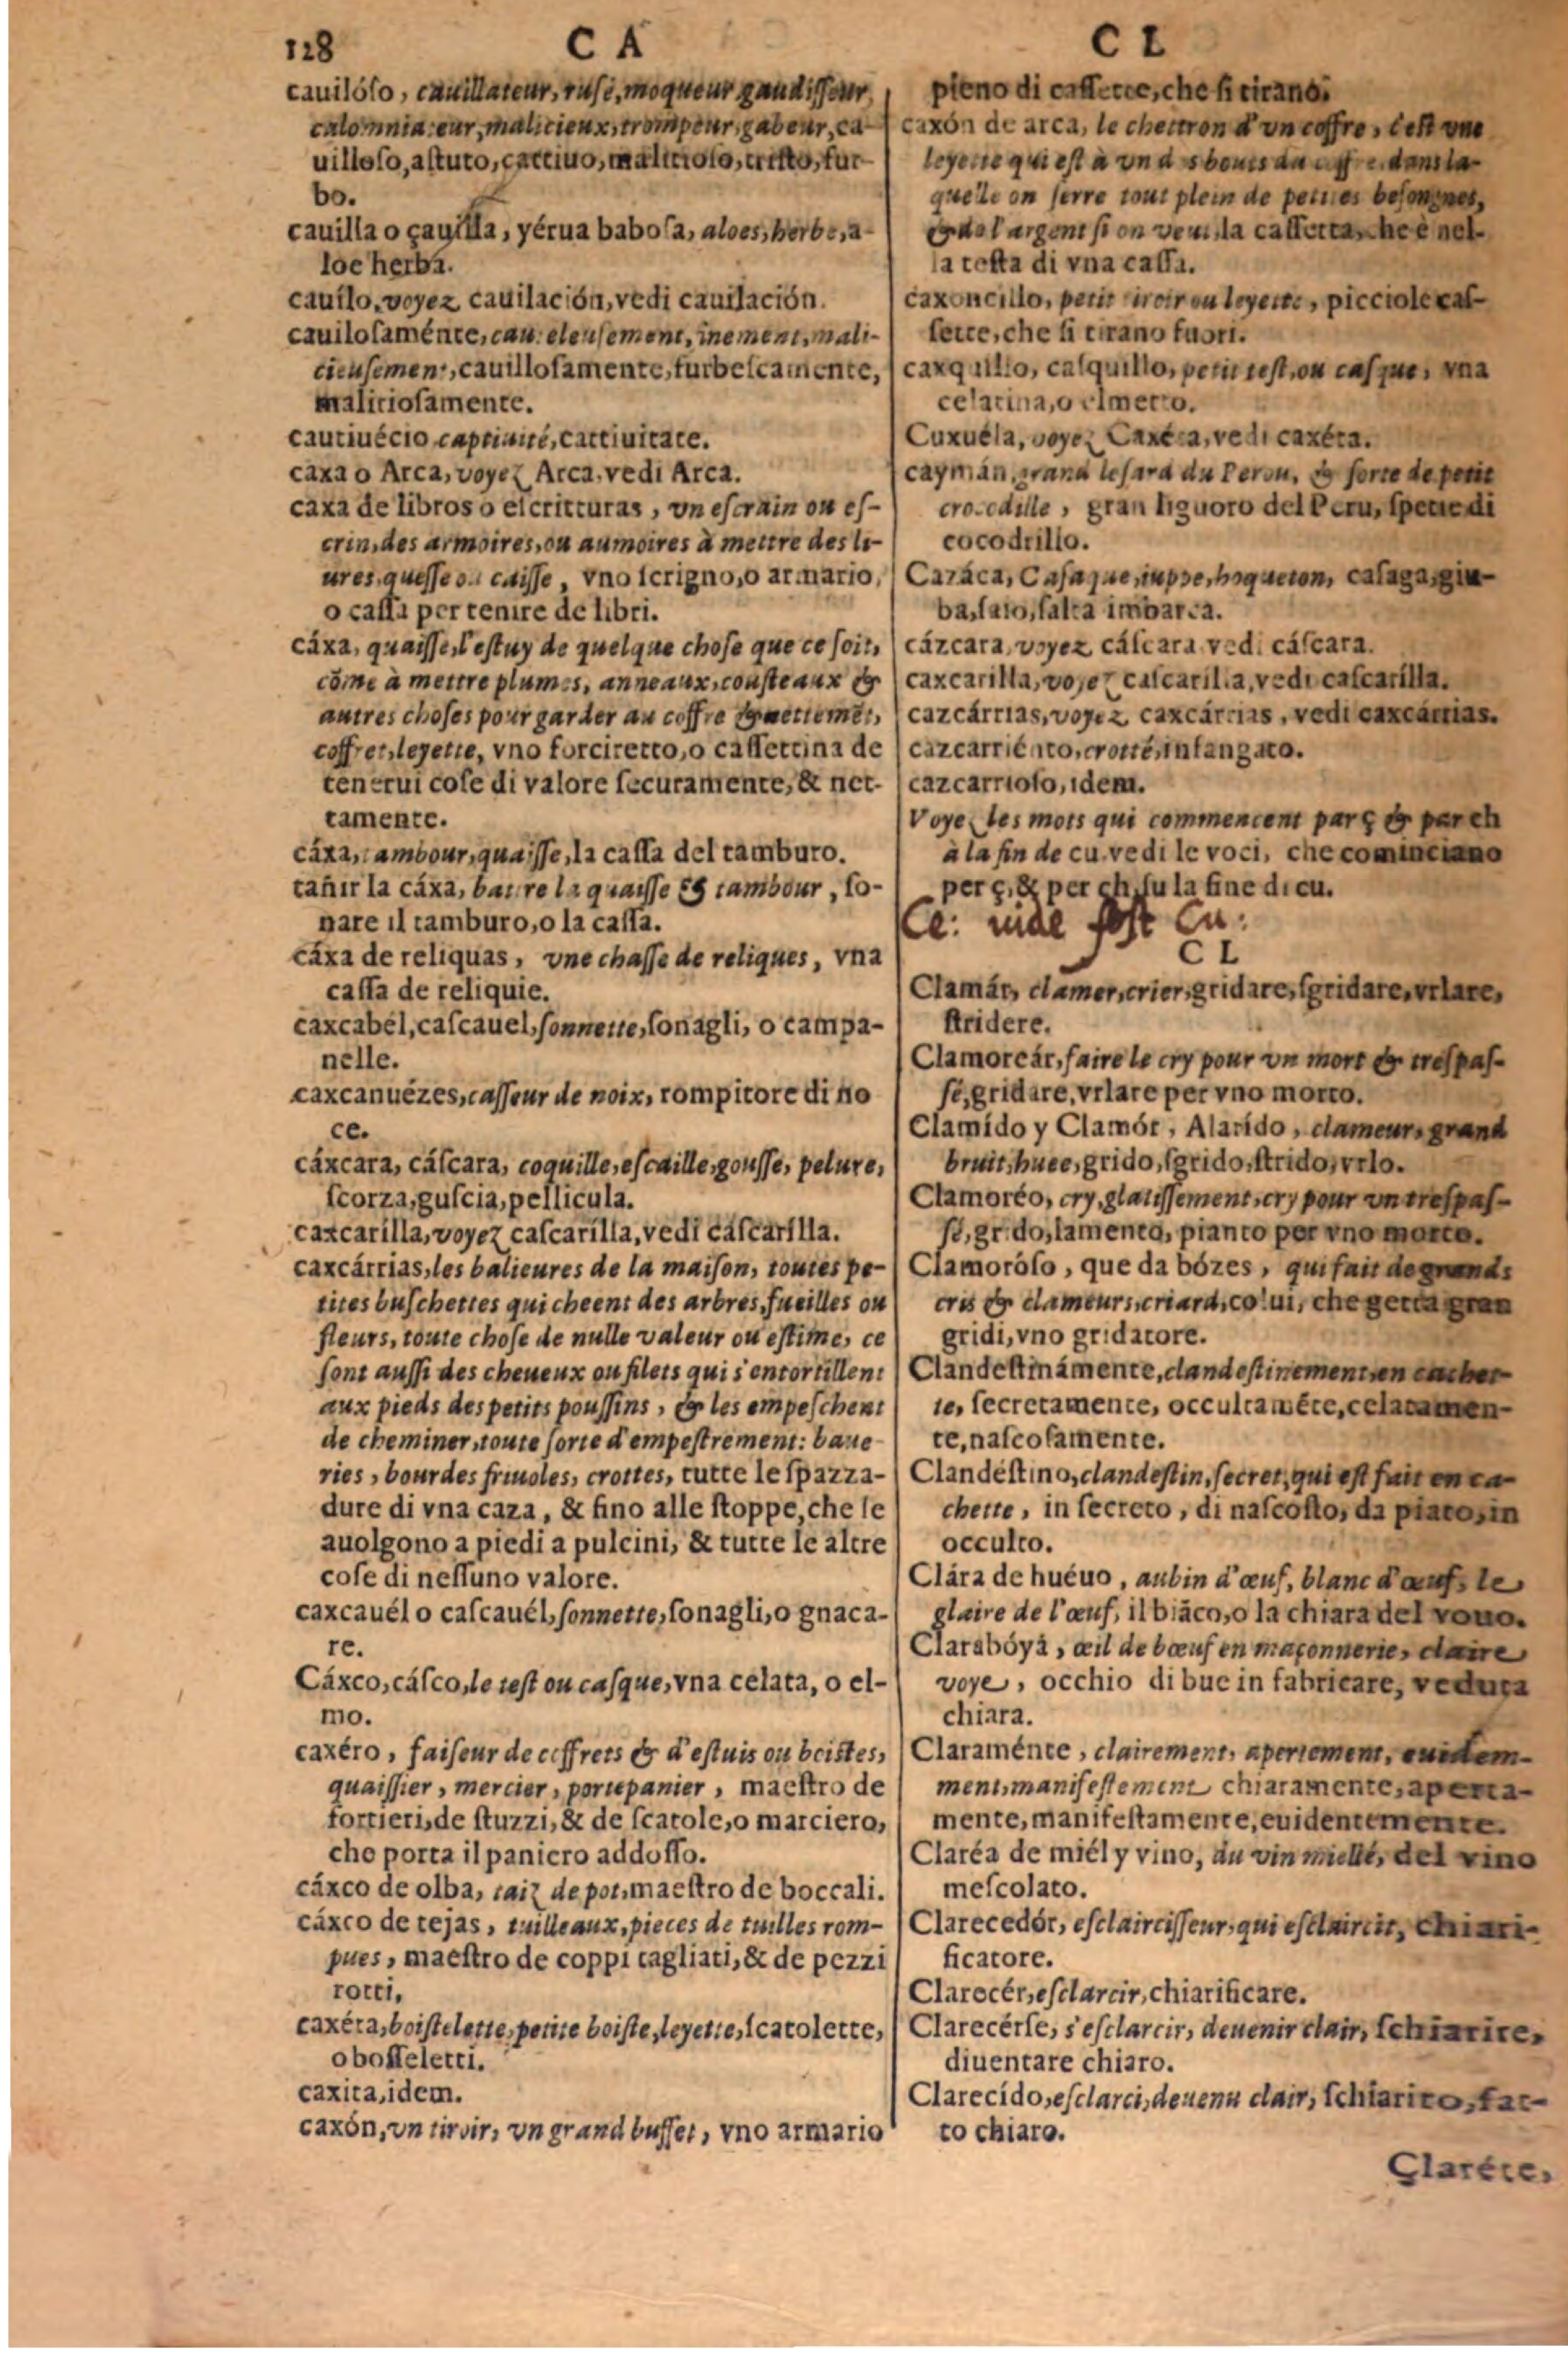 128
C A
C L
cauilóſo, cauillateur, ruſé, moqueur gaudiſſeur,
calomniateur, malicieux, trompeur, gabeur, ca-
uilloſo, aſtuto, cattiuo, malitioſo, triſto, fur-
bo.
cauilla o çauilla, yérua baboſa, aloes, herbe, a-
loe herba.
cauílo, voyez cauilación, vedi cauilación.
cauiloſaménte, cauteleuſement, finement, mali-
cieuſement, cauilloſamente, furbeſcamente,
malitioſamente.
cautiuécio captiuité, cattiuitate.
caxa o Arca, voyez Arca, vedi Arca.
caxa de libros o eſcritturas, vn eſcrain ou eſ-
crin, des armoires, ou aumoires à mettre des li-
ures, queſſe ou caiſſe, vno ſcrigno, o armario,
o caſſa per tenire de libri.
cáxa, quaiſſe, l'eſtuy de quelque choſe que ce ſoit,
cõme à mettre plumes, anneaux, couſteaux &
autres choſes pour garder au coffre & nettemẽt,
coffret, leyette, vno forciretto, o caſſettina de
tenerui coſe di valore ſecuramente, & net-
tamente.
cáxa, tambour, quaiſſe, la caſſa del tamburo.
tañir la cáxa, battre la quaiſſe & tambour, ſo-
nare il tamburo, o la caſſa.
cáxa de reliquas, vne chaſſe de reliques, vna
caſſa de reliquie.
caxcabél, caſcauel, ſonnette, ſonagli, o campa-
nelle.
caxcanuézes, caſſeur de noix, rompitore di no
ce.
cáxcara, cáſcara, coquille, eſcaille, gouſſe, pelure,
ſcorza, guſcia, pellicula.
caxcarilla, voyez caſcarílla, vedi cáſcarílla.
caxcárrias, les balieures de la maiſon, toutes pe-
tites buſchettes qui cheent des arbres, fueilles ou
fleurs, toute choſe de nulle valeur ou eſtime, ce
ſont auſſi des cheueux ou filets qui s'entortillent
aux pieds des petits pouſſins, & les empeſchent
de cheminer, toute ſorte d'empeſtrement: baue-
ries, bourdes friuoles, crottes, tutte le ſpazza-
dure di vna caza, & fino alle ſtoppe, che ſe
auolgono a piedi a pulcini, & tutte le altre
coſe di neſſuno valore.
caxcauél o caſcauél, ſonnette, ſonagli, o gnaca-
re.
Cáxco, cáſco, le teſt ou caſque, vna celata, o el-
mo.
caxéro, faiſeur de coffrets & d'eſtuis ou boiſtes,
quaiſſier, mercier, portepanier, maeſtro de
fortieri, de ſtuzzi, & de ſcatole, o marciero,
che porta il paniero addoſſo.
cáxco de olba, taiz de pot, maeſtro de boccali.
cáxco de tejas, tuilleaux, pieces de tuilles rom-
pues, maeſtro de coppi tagliati, & de pezzi
rotti,
caxéta, boiſtelette, petite boiſte, leyette, ſcatolette,
o boſſeletti.
caxita, idem.
caxón, vn tiroir, vn grand buffet, vno armario
pieno di caſſette, che ſi tirano.
caxón de arca, le chettron d'vn coffre, c'eſt vne
leyette qui eſt à vn des bouts du coffre dans la-
quelle on ſerre tout plein de petites beſongnes,
& de l'argent ſi on veut, la caſſetta, che è nel-
la teſta di vna caſſa.
caxoncillo, petit tiroir ou leyette, picciole caſ-
ſette, che ſi tirano fuori.
caxquillo, caſquillo, petit teſt, ou caſque, vna
celatina, o elmetto.
Cuxuéla, voyez Caxéta, vedi caxéta.
caymán, grand leſard du Perou, & ſorte de petit
crocodille, gran liguoro del Peru, ſpetie di
cocodrillo.
Cazáca, Caſaque, iuppe, hoqueton, caſaga, giu-
ba, ſaio, ſalta imbarca.
cázcara, voyez cáſcara vedi cáſcara.
caxcarilla, voyez caſcarilla, vedi caſcarílla.
cazcárrias, voyez caxcárrias, vedi caxcárrias.
cazcarriénto, crotté, infangato.
cazcarrioſo, idem.
Voyez les mots qui commencent par ç & par ch
à la fin de cu. vedi le voci, che cominciano
per ç, & per ch, ſu la fine di cu.
Ce: uide poſt Cu:
C L
Clamár, clamer, crier, gridare, ſgridare, vrlare,
ſtridere.
Clamoreár, faire le cry pour vn mort & treſpaſ-
ſé, gridare, vrlare per vno morto.
Clamído y Clamór, Alarído, clameur, grand
bruit, huee, grido, ſgrido, ſtrido, vrlo.
Clamoréo, cry, glatiſſement, cry pour vn treſpaſ-
ſé, grido, lamento, pianto per vno morto.
Clamoróſo, que da bózes, qui fait de grands
cris & clameurs, criard, colui, che getta gran
gridi, vno gridatore.
Clandeſtinámente, clandeſtinement, en cachet-
te, ſecretamente, occultamẽte, celatamen-
te, naſcoſamente.
Clandéſtino, clandeſtin, ſecret, qui eſt fait en ca-
chette, in ſecreto, di naſcoſto, da piato, in
occulto.
Clára de huéuo, aubin d'œuf, blanc d'œuf, le
glaire de l'œuf, il biãco, o la chiara del vouo.
Clarabóyá, œil de bœuf en maçonnerie, claire
voye, occhio di bue in fabricare, veduta
chiara.
Claraménte, clairement, apertement, euidem-
ment, manifeſtement chiaramente, aperta-
mente, manifeſtamente, euidentemente.
Claréa de miél y vino, du vin miellé, del vino
meſcolato.
Clarecedór, eſclairciſſeur, qui eſclaircit, chiari-
ficatore.
Clarecér, eſclarcir, chiarificare.
Clarecérſe, s'eſclarcir, deuenir clair, ſchiarire,
diuentare chiaro.
Clarecído, eſclarci, deuenu clair, ſchiarito, fat-
to chiaro.
Claréte,